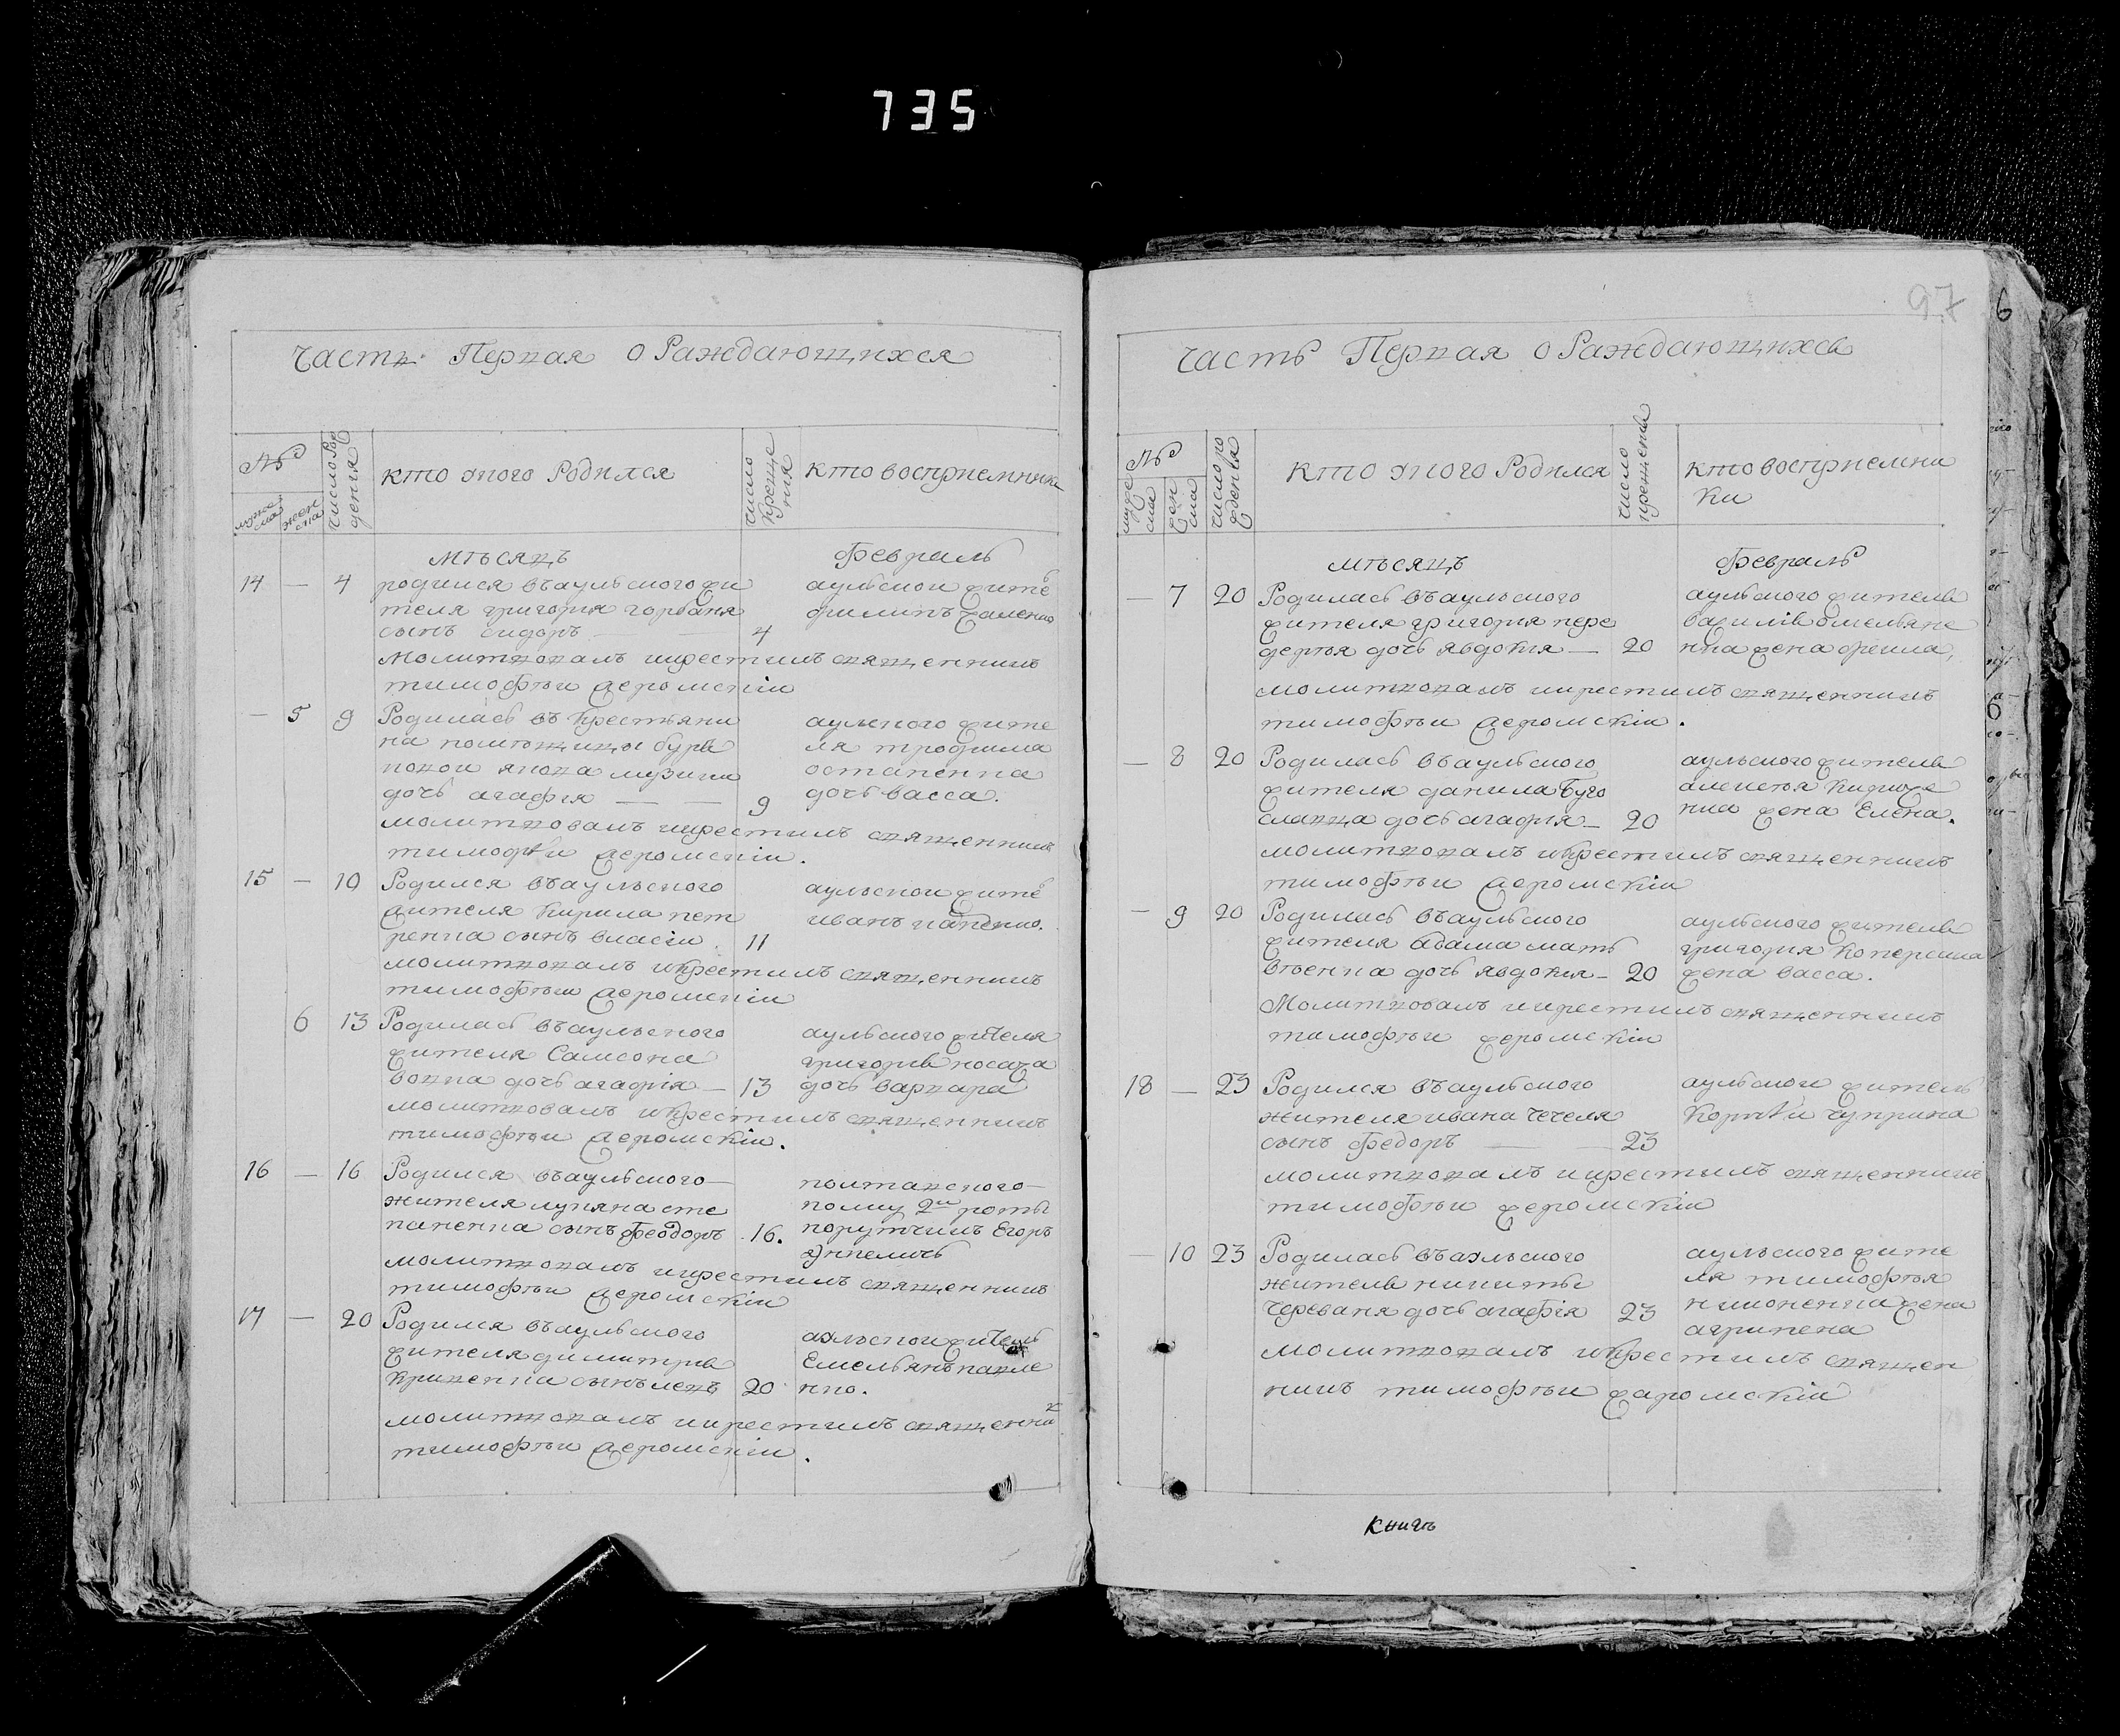 735
Часть Первая о Раждающихся
№
муже ска
женска
число Рождения
кто укого Родился
число крещения
кто восприемники
мѣсяцъ Февраль
14 — 4 родился въаульского жи
теля григория горбаня
сынъ сидоръ 4
аульскои жите
филипъ
молитвовалъ икрестилъ священникъ
тимофѣи жеромскiи
— 5 9 Родилась въ крестьяни
на помѣщицы
дочь агафия — — 9
аульского жите
ля трофима
остапенка
дочь васса.
молитвовалъ икрестилъ священникъ
тимофѣи жеромскiи.
15 — 10 Родился въаульского
жителя кирила пет
ренка сынъ власiи 11
аульскои жите
иванъ
молитвовалъ икрестилъ священникъ
тимофѣи жеромскiи
6 13 Родилась въаульского
жителя Самсона
вовка дочь агафiя — 13
аульского жителя
григория носача
дочь варвара
молитвовалъ икрестилъ священникъ
тимофѣи жеромскiи.
16 — 16 Родился въаульского
жителя лукяна сте
паненка сынъ феодоръ 16.
полтавского
полку 2й роты
поручикъ Егоръ
молитвовалъ икрестилъ священникъ
тимофѣи жеромскiи
17 — 20 Родился въаульского
жителя димитрия
сынъ левъ 20
аульскои житель
Емельянъ павле
нко.
молитвовалъ икрестилъ священник
тимофѣи жеромскiи.
97
6
Часть Первая о Раждающихся
№
муже ска
женска
число рождения
кто укого Родился
число крещения
кто восприемни
ки
мѣсяцъ Февраль
— 7 20 Родилась въаульского
жителя григория пере
дерѣя дочь явдокия — 20
аульского жителя
василiя омельяне
нка жена
молитвовалъ икрестилъ священникъ
тимофѣи жеромскiи.
— 8 20 Родилась въаульского
жителя данила буго
славца дочь агафия — 20
аульского жителя
алексѣя
нка жена Елена.
молитвовалъ икрестилъ священникъ
тимофѣи жеромскiи
— 9 20 Родилась въаульского
жителя адама мать
вѣенка дочь явдокия — 20
аульского жителя
григория
жена васса.
Молитвовалъ икрестилъ священникъ
тимофѣи жеромскiи
18 — 23 Родился въаульского
жителя ивана чечеля
сынъ федоръ — 23
аульскои житель
Корнѣи чуприна
молитвовалъ икрестилъ священникъ
тимофѣи жеромскiи
— 10 23 Родилась въаульского
жителя никиты
череваня дочь агафiя 23
аульского жите
ля тимофѣя
жена
агрипена
молитвовалъ икрестилъ священ
никъ тимофѣи жаромскiи
Книгъ